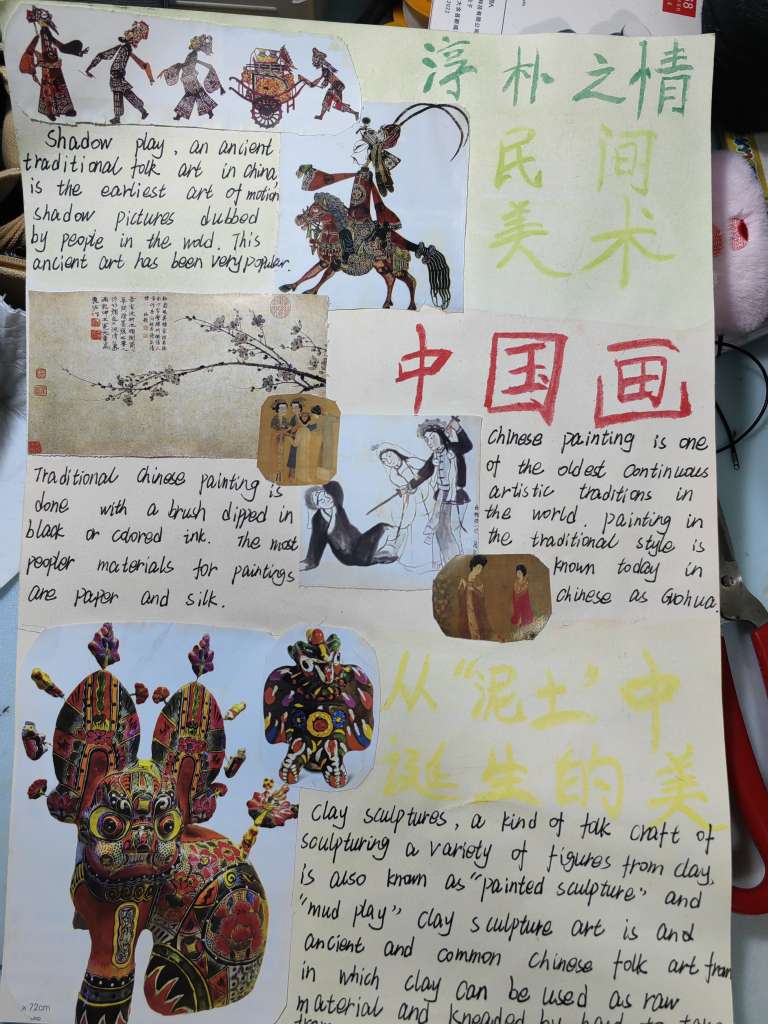 淳朴之情
民间
美术
Shadow play, an ancient
traditional folk art in china
is the earliest art of motion
shadow pictures dubbed
by people in the wold. This
ancient art has been very popular.
中国画
Chinese painting is one
of the oldest continuous
artistic traditions in
the world. painting in
the traditional style is
known today in
chinese as Guohua.
Traditional chinese painting is
done with a brush dipped in
black or colored ink. The most
peopler materials for paintings
are paper and silk.
从“泥土”中
诞生的美
Clay sculptures, a kind of folk craft of
soulpturing a variety of figures from clay,
is also known as "painted sculpture" and
"mud play" clay sculpture art is and
ancient and common Chinese folk art from
in which clay can be used as raw
material and kneaded by hand
x 72cm